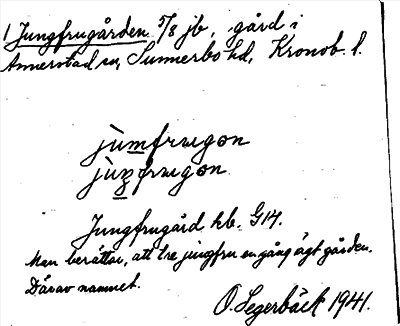 1 Jungfrugården 5/8 jb, gård i
Annerstad sn, Sunnerbo hd, Kronob. l.
jùmfrugon
jùŋfrugon
Jungfrugård hb. G14.
Man berättar, att tre jungfru en gång ägt gården.
Därav namnet.
O. Segerbäck 1941.